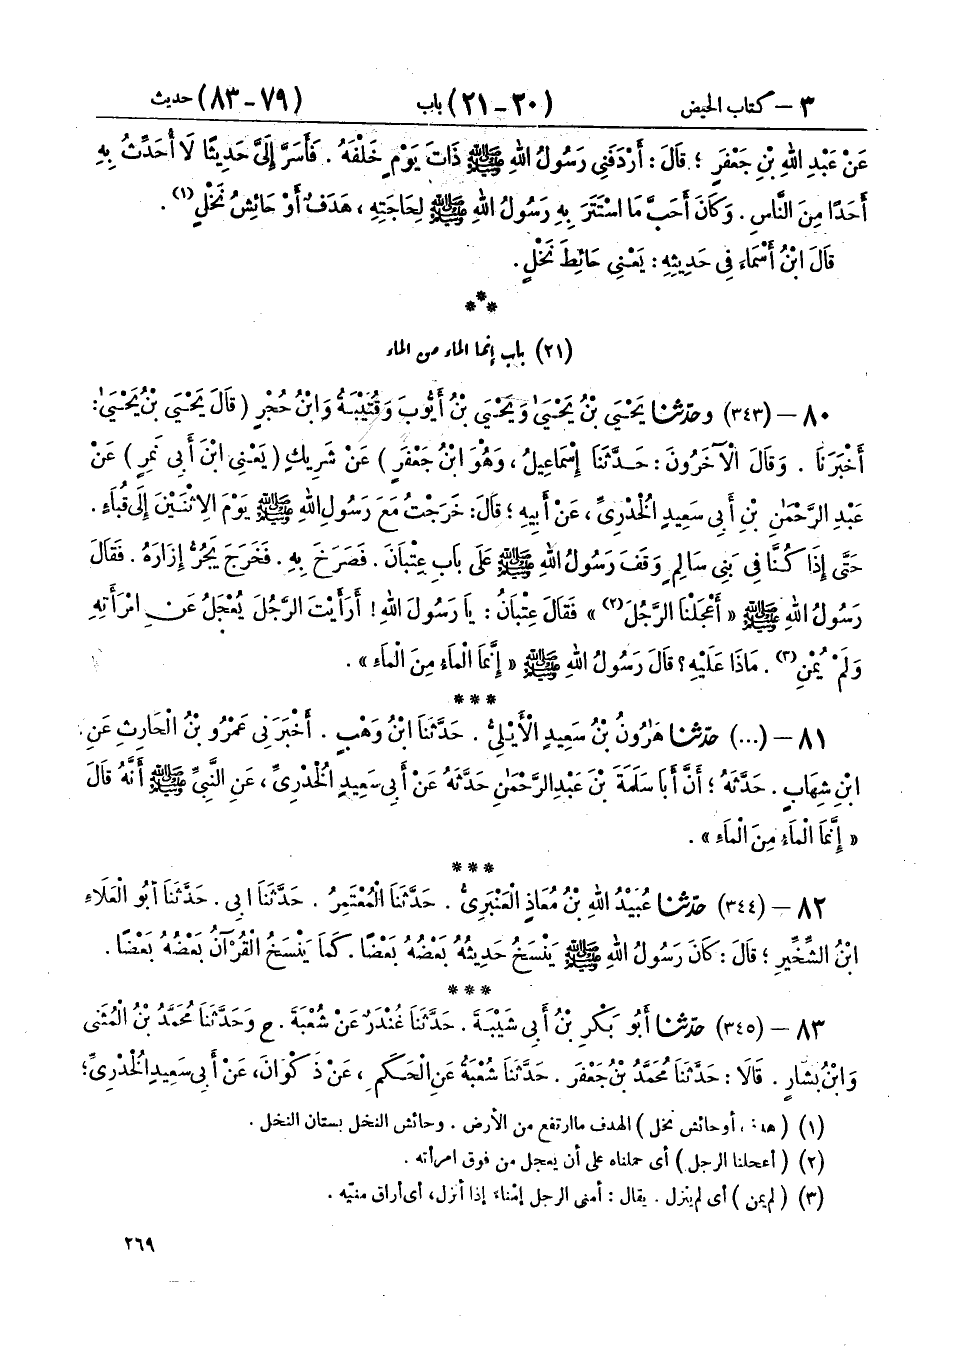 ٣ – كتاب الحيض (٢٠-٢١) باب (٧٩-٨٣) حديث
عَنْ عَبْدِ اللهِ بْنِ جَعْفَرٍ ؛ قَالَ : أَرْدَفَنِي رَسُولُ اللهِ ﷺ ذَاتَ يَوْمٍ خَلْفَهُ . فَأَسَرَّ إِلَىَّ حَدِيثًا لَا أُحَدِّثُ بِهِ
أَحَدًا مِنَ النَّاسِ . وَكَانَ أَحَبَّ مَا اسْتَتَرَ بِهِ رَسُولُ اللهِ ﷺ لِحَاجَتِهِ ، هَدَفٌ أَوْ حَائِشُ نَخْلٍ (١) .
قَالَ ابْنُ أَسْمَاءَ فِي حَدِيثِهِ : يَعْنِي حَائِطَ نَخْلٍ .
***
(٢١) باب إنما الماء من الماء
٨٠ – (٣٤٣) وحدّثنا يَحْيَى بْنُ يَحْيَىٰ وَيَحْيَى بْنُ أَيُّوبَ وَقُتَيْبَةُ وَابْنُ حُجْرٍ ( قَالَ يَحْيَى بْنُ يَحْيَىٰ :
أَخْبَرَنَا . وَقَالَ الْآخَرُونَ : حَدَّثَنَا إِسْمَاعِيلُ ، وَهُوَ ابْنُ جَعْفَرٍ ) عَنْ شَرِيكٍ ( يَعْنِي ابْنَ أَبِي نَمِرٍ ) عَنْ
عَبْدِ الرَّحْمَٰنِ بْنِ أَبِي سَعِيدٍ الْخُدْرِيِّ ، عَنْ أَبِيهِ ؛ قَالَ : خَرَجْتُ مَعَ رَسُولِ اللهِ ﷺ يَوْمَ الِاثْنَيْنِ إِلَى قُبَاءٍ .
حَتَّى إِذَا كُنَّا فِي بَنِي سَالِمٍ وَقَفَ رَسُولُ اللهِ ﷺ عَلَى بَابِ عِتْبَانَ . فَصَرَخَ بِهِ . فَخَرَجَ يَجُرُّ إِزَارَهُ . فَقَالَ
رَسُولُ اللهِ ﷺ « أَعْجَلْنَا الرَّجُلَ (٢) » فَقَالَ عِتْبَانُ : يَا رَسُولَ اللهِ ! أَرَأَيْتَ الرَّجُلَ يُعْجَلُ عَنِ امْرَأَتِهِ
وَلَمْ يُمْنِ (٣) . مَاذَا عَلَيْهِ ؟ قَالَ رَسُولُ اللهِ ﷺ « إِنَّمَا الْمَاءُ مِنَ الْمَاءِ » .
***
٨١ – (...) حدّثنا هَٰرُونُ بْنُ سَعِيدٍ الْأَيْلِيُّ . حَدَّثَنَا ابْنُ وَهْبٍ . أَخْبَرَنِي عَمْرُو بْنُ الْحَارِثِ عَنِ
ابْنِ شِهَابٍ . حَدَّثَهُ ؛ أَنَّ أَبَا سَلَمَةَ بْنَ عَبْدِ الرَّحْمَٰنِ حَدَّثَهُ عَنْ أَبِي سَعِيدٍ الْخُدْرِيِّ ، عَنِ النَّبِيِّ ﷺ أَنَّهُ قَالَ
« إِنَّمَا الْمَاءُ مِنَ الْمَاءِ » .
***
٨٢ – (٣٤٤) حدّثنا عُبَيْدُ اللهِ بْنُ مُعَاذٍ الْعَنْبَرِيُّ . حَدَّثَنَا الْمُعْتَمِرُ . حَدَّثَنَا أَبِي . حَدَّثَنَا أَبُو الْعَلَاءِ
ابْنُ الشِّخِّيرِ ؛ قَالَ : كَانَ رَسُولُ اللهِ ﷺ يَنْسَخُ حَدِيثُهُ بَعْضُهُ بَعْضًا . كَمَا يَنْسَخُ الْقُرْآنُ بَعْضُهُ بَعْضًا .
***
٨٣ – (٣٤٥) حدّثنا أَبُو بَكْرِ بْنُ أَبِي شَيْبَةَ . حَدَّثَنَا غُنْدَرٌ عَنْ شُعْبَةَ . ح وَحَدَّثَنَا مُحَمَّدُ بْنُ الْمُثَنَّى
وَابْنُ بَشَّارٍ . قَالَا : حَدَّثَنَا مُحَمَّدُ بْنُ جَعْفَرٍ . حَدَّثَنَا شُعْبَةُ عَنِ الْحَكَمِ ، عَنْ ذَكْوَانَ ، عَنْ أَبِي سَعِيدٍ الْخُدْرِيِّ ؛
(١) ( هدف ، أو حائش نخل ) الهدف ما ارتفع من الأرض . وحائش النخل بستان النخل .
(٢) ( أعجلنا الرجل ) أى حملناه على أن يعجل من فوق امرأته .
(٣) ( لم يمن ) أى لم ينزل . يقال : أمنى الرجل إمْناءً إذا أنزل ، أى أراق منيّه .
٢٦٩